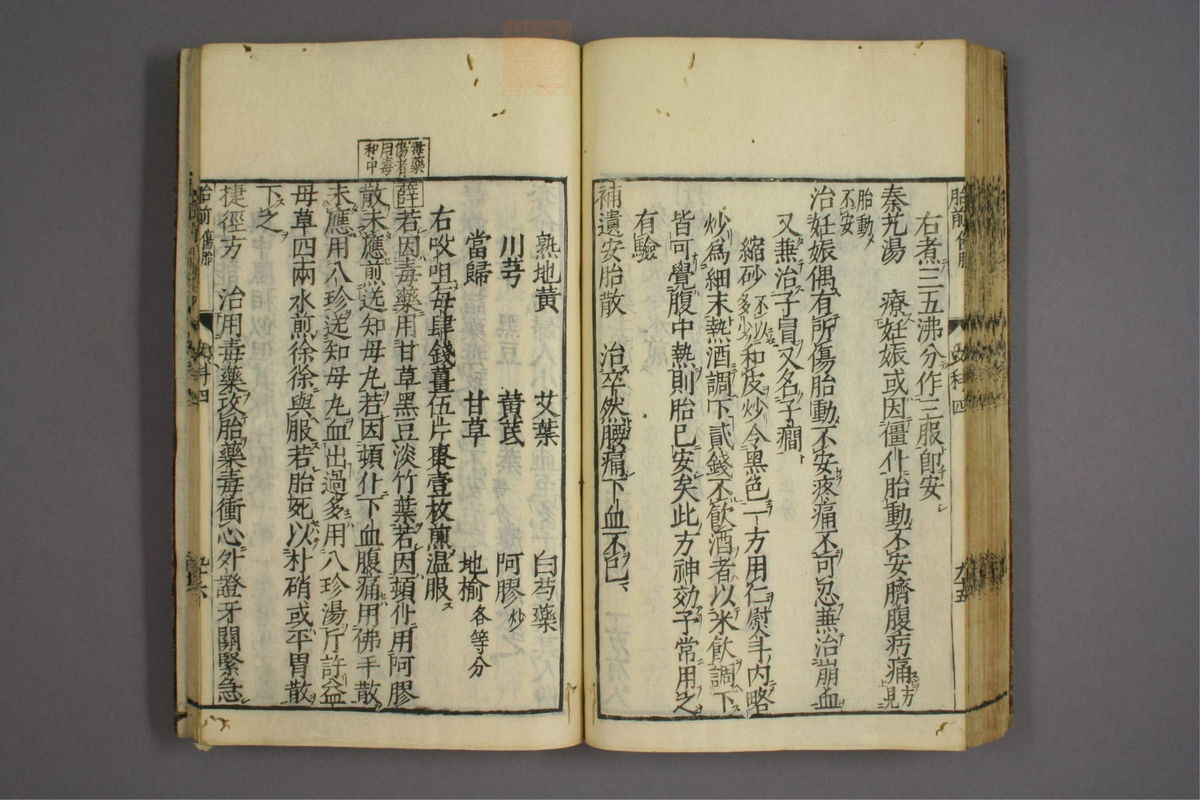 胎前 傷胎 女科四 九十五
右煮三五沸分作三服即安
秦艽湯 療妊娠或因僵仆胎動不安臍腹疞痛方見
胎動
不安
治妊娠偶有所傷胎動不安疼痛不可忍兼治崩血
又兼治子冒又名子癎
縮砂不以多少和皮炒令黑色一方用仁熨斗内略
炒為細末熱酒調下貳錢不飲酒者以米飲調下
皆可覺腹中熱則胎已安矣此方神効予常用之
有驗
補遺安胎散 治卒然腰痛下血不已
熟地黄 艾葉 白芍藥
川芎 黄芪 阿膠炒
當歸 甘草 地榆各等分
右㕮咀每肆錢薑伍片棗壹枚煎溫服
毒藥
傷者
用毒
和中
薛若因毒藥用甘草黑豆淡竹葉若因頓仆用阿膠
散未應煎送知母丸若因頓仆下血腹痛用佛手散
未應用八珍送知母丸血出過多用八珍湯斤許益
母草四兩水煎徐徐與服若胎死以朴硝或平胃散
下之
捷徑方 治用毒藥攻胎藥毒衝心外證牙關緊急
胎前 傷胎 女科四 九十六